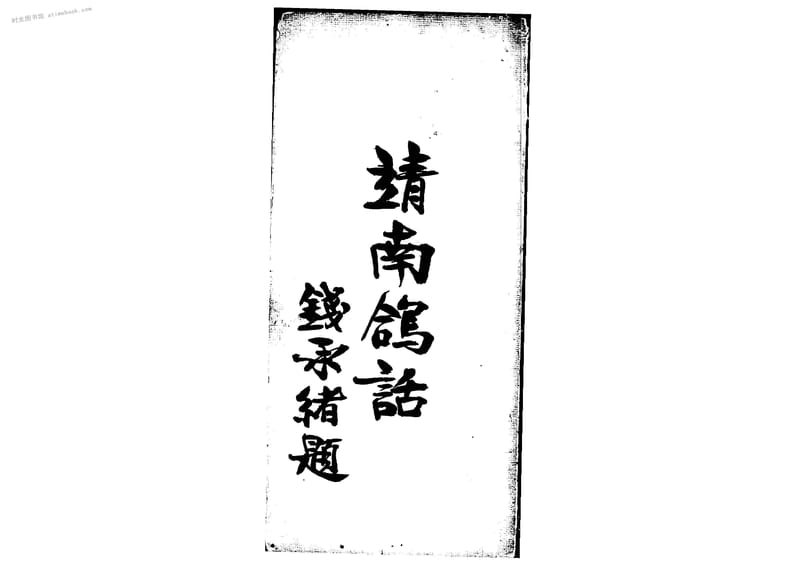 时光图书馆 atimebook.com
靖南鴿話
錢承緒題